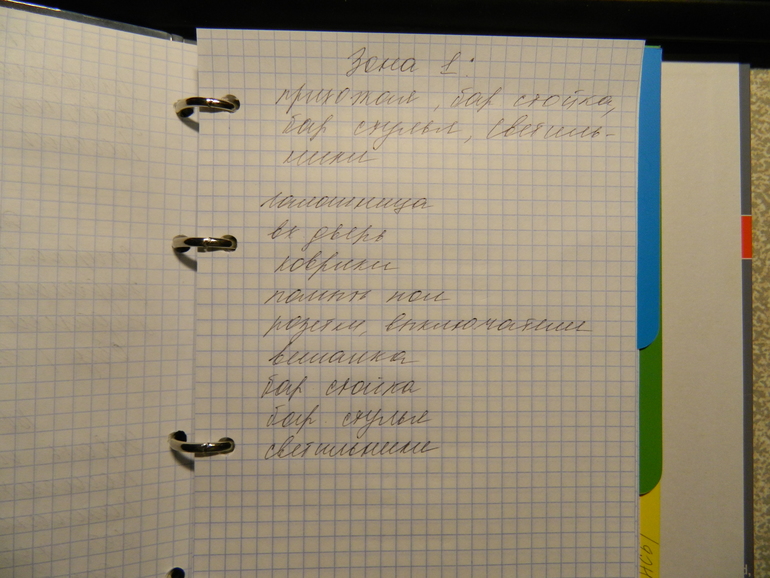 Зона 1:
прихожая, бар стойка,
бар стулья, светиль-
ники
галошница
вх дверь
коврики
пол
розетки, выключатели
вешалка
бар стойка
бар. стулья
светильники